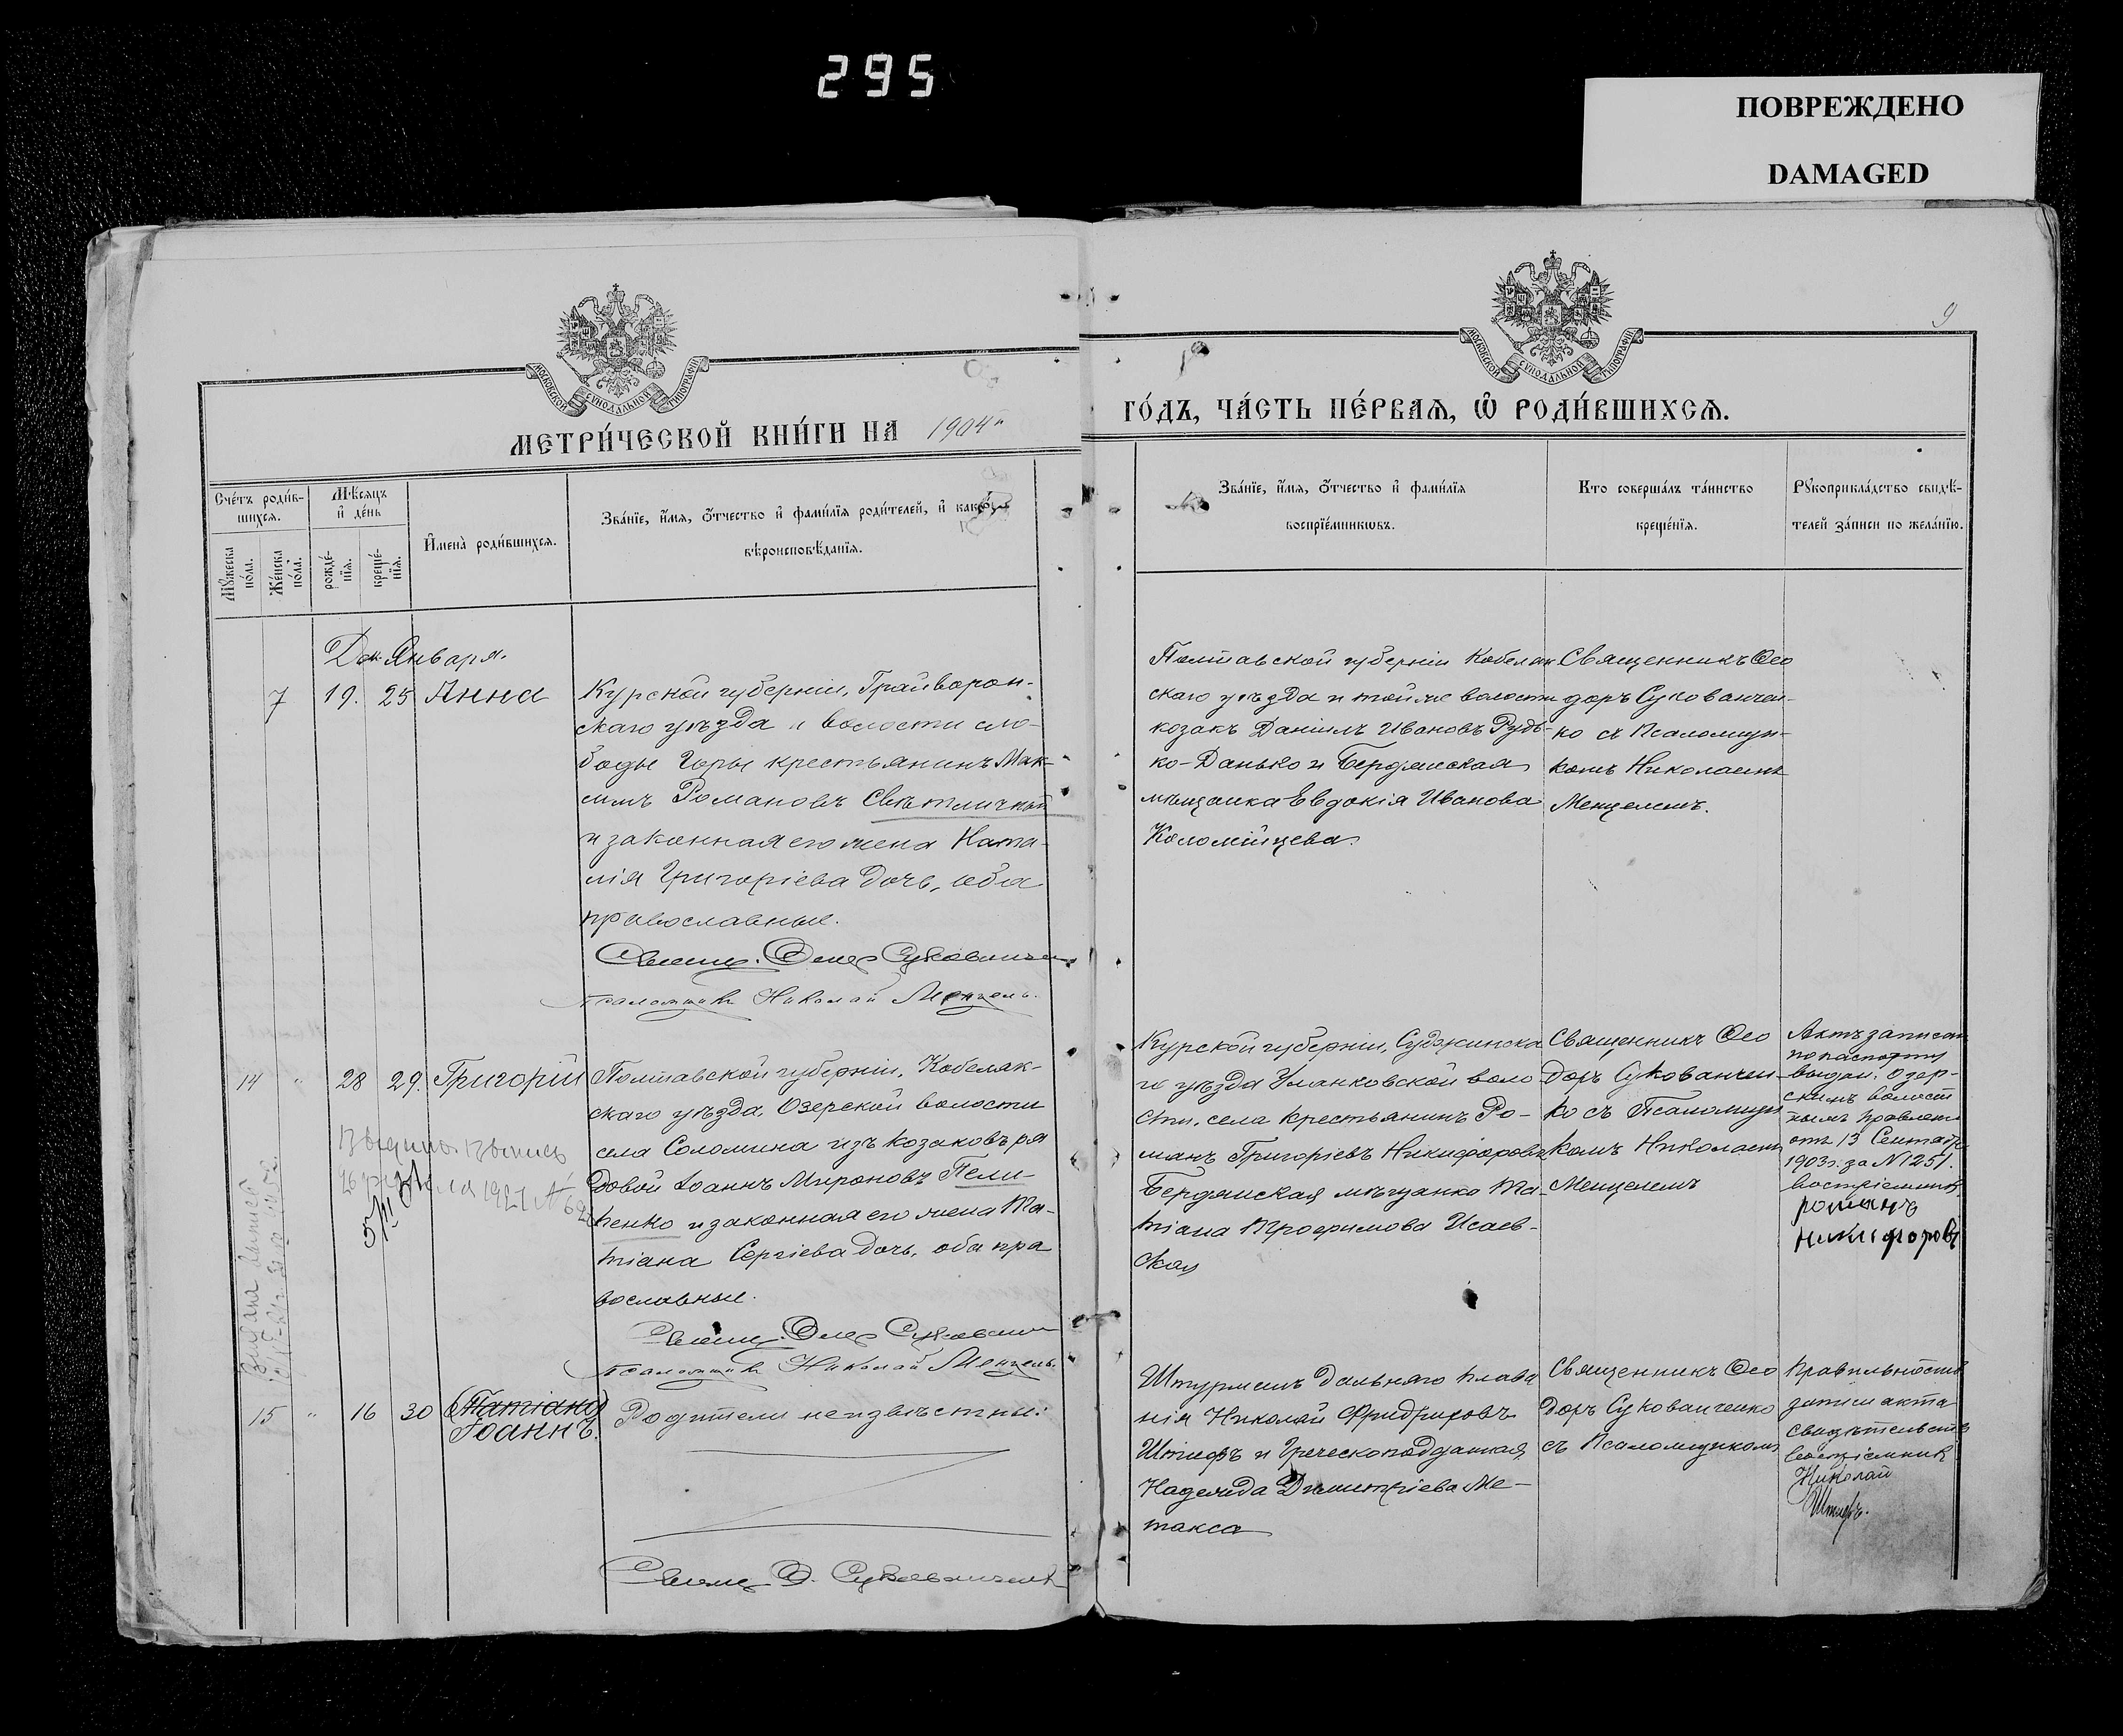 295
ПОВРЕЖДЕНО
DAMAGED
9
МОСКОВСКОЙ СѴНОДАЛЬНОЙ ТИПОГРАФІИ
МОСКОВСКОЙ СѴНОДАЛЬНОЙ ТИПОГРАФІИ
МЕТРИ́ЧЕСКОЙ КНИ́ГИ НА 1904й
ГО́ДЪ, ЧА́СТЬ ПЕ́РВАѦ, Ѡ҆ РОДИ́ВШИХСѦ.
Сче́тъ роди́в-
шихсѧ.
Мꙋ́жеска по́ла.
Же́нска по́ла.
Мѣ́сѧцъ
и҆ де́нь
рожде́-
нїѧ.
креще́-
нїѧ.
И҆мена̀ роди́вшихсѧ.
Зва́нїе, и҆́мѧ, ѻ҆́тчество и҆ фами́лїѧ роди́телей, и҆ како́гѡ
вѣроисповѣ́данїѧ.
Зва́нїе, и҆́мѧ, ѻ҆́тчество и҆ фами́лїѧ
воспрїе́мникѡвъ.
Кто соверша́лъ та́инство
креще́нїѧ.
Рꙋкоприкла́дство свидѣ́-
телей за́писи по жела́нїю.
Января.
7 19. 25 Анна
Курской губерніи, Грайворон-
скаго уѣзда и волости сло-
боды Горы крестьянинъ Мак-
симъ Романовъ Свѣтличный
и законная его жена Ната-
лія Григоріева дочь, оба
православные.
Псаломщикъ Николай Менцель.
Полтавской губерніи Кобеляк
скаго уѣзда и той же волости
козакъ Даніилъ Ивановъ Рудь-
ко-Данько и Бердянская
мѣщанка Евдокія Иванова
Коломійцева.
Священникъ Ѳео
доръ Сукованчен-
ко съ Псаломщи-
комъ Николаемъ
Менцелемъ.
14 " 28 29. Григорій
Полтавской губерніи, Кобеляк-
скаго уѣзда, Озерской волости
села Соломина изъ козаковъ ря
довой Іоаннъ Мироновъ Пели-
пенко и законная его жена Та-
тіана Сергіева дочь, оба пра
вославные.
Псаломщикъ Николай Менцель.
Курской губерніи, Суджинска
го уѣзда Уланковской воло
сти, села крестьянинъ Ро-
манъ Григоріевъ Никифоровъ
Бердянская мѣщанка Та-
тіана Трофимова Исаев-
ская
Священникъ Ѳео
доръ Сукованчен-
ко съ Псаломщи
комъ Николаемъ
Менцелемъ
Актъ записан
по паспорту
выдан. Озер-
скимъ волост
нымъ правлен.
отъ 13 Сентябр
1903 г. за N 1251.
воспріемникъ
романъ
никифоровъ
15 " 16 30 (Татіана)
Іоаннъ.
Родители неизвѣстны:
Штурманъ дальняго плава
нія Николай Фридриховъ
Штифъ и Греческоподданная
Надежда Димитріева Ме-
такса
Священникъ Ѳео
доръ Сукованченко
съ Псаломщикомъ
Правильность
записи акта
свидѣтельств
воспріемникъ
Николай
Штифъ.